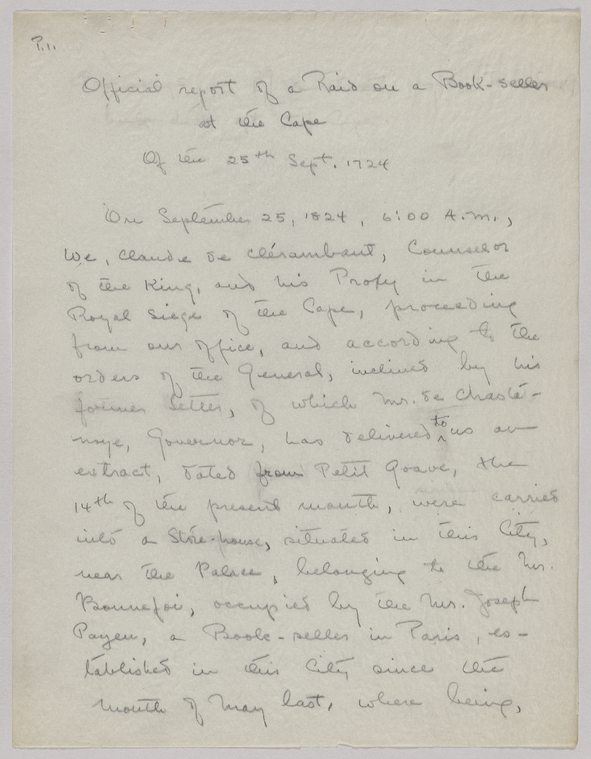 P.1.
Official report of a Raid on a Book-seller
at the Cape
Of the 25th Sept. 1724
On September 25, 1824, 6:00 A.M.,
We, Claude de Clérambaut, Counselor
of the King, and his Proxy in the
Royal Siege of the Cape, proceeding
from our office, and according to the
orders of the General, inclined by his
former letter, of which Mr. de Chasté-
noye, Governor, has delivered to us an
extract, dated from Petit Goave, the
14th of the present month, were carried
into a Store-house, situated in this City,
near the Palace, belonging to the Mr.
Bonnefoi, occupied by the Mr. Joseph
Payen, a Book-seller in Paris, es-
tablished in this City since the
month of May last, where being,